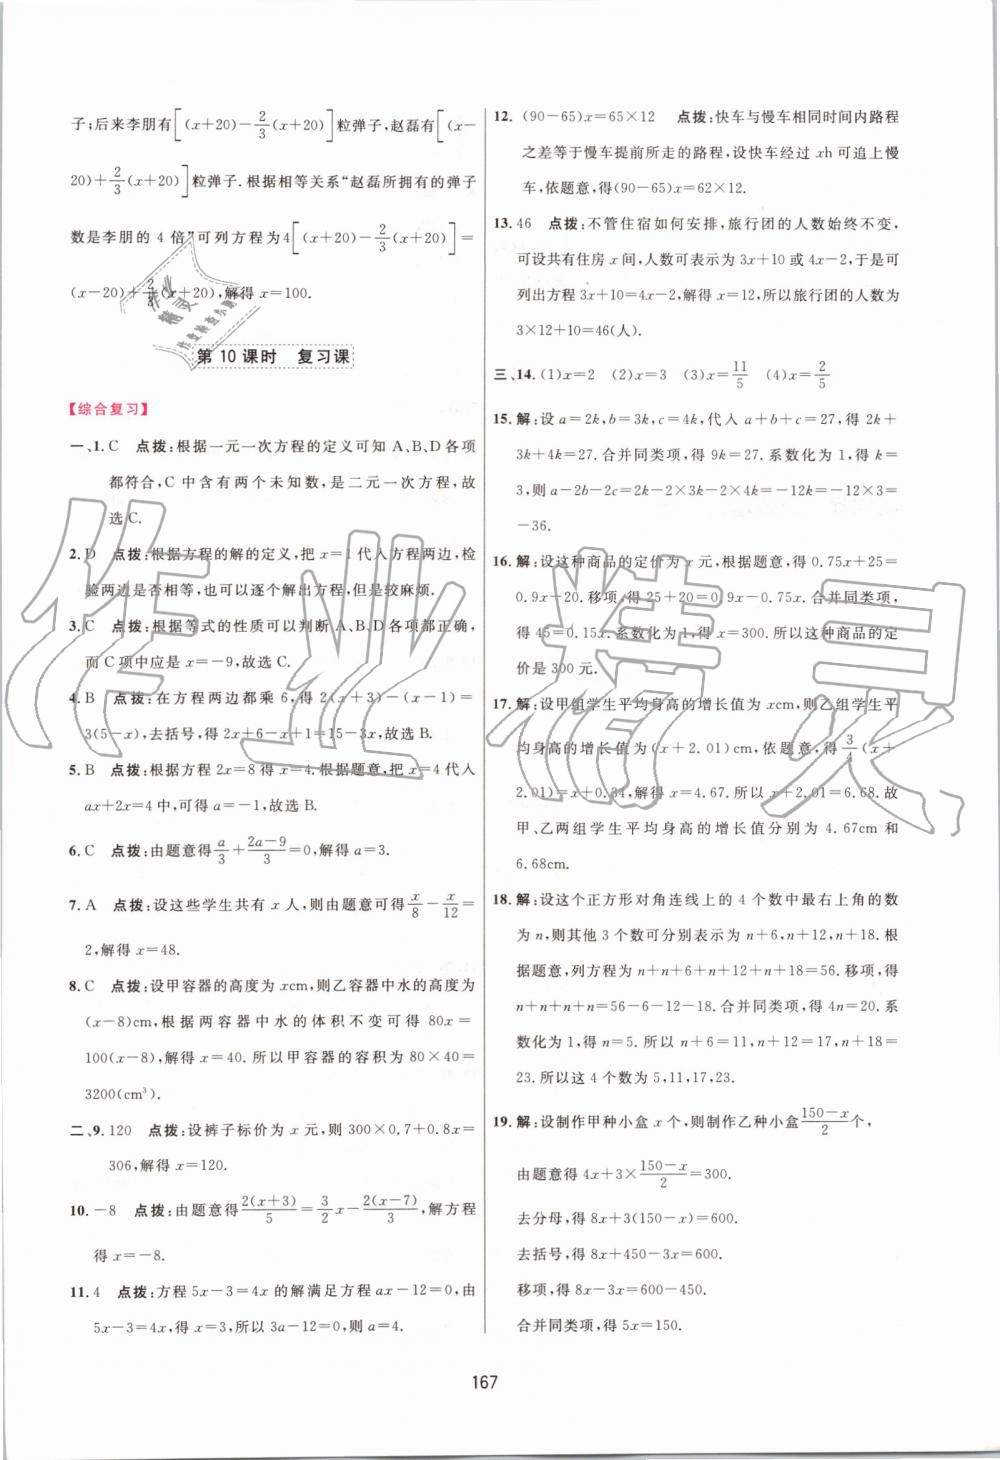 子;后来李朋有[(x+20)-2/3(x+20)]粒弹子,赵磊有[(x-
20)+2/3(x+20)]粒弹子.根据相等关系“赵磊所拥有的弹子
数是李朋的 4 倍”可列方程为4[(x+20)-2/3(x+20)]=
(x-20)+2/3(x+20),解得 x=100.
第 10 课时 复习课
【综合复习】
一、1. C 点拨:根据一元一次方程的定义可知 A、B、D各项
都符合,C 中含有两个未知数,是二元一次方程,故
选 C.
2. D 点拨:根据方程的解的定义,把 x=1代入方程两边,检
验两边是否相等,也可以逐个解出方程,但是较麻烦.
3. C 点拨:根据等式的性质可以判断 A、B、D 各项都正确,
而 C 项中应是 x=-9,故选 C.
4. B 点拨:在方程两边都乘 6,得 2(x+3)-(x-1)=
3(5-x),去括号,得 2x+6-x+1=15-3x,故选 B.
5. B 点拨:根据方程 2x=8得 x=4.根据题意,把 x=4代入
ax+2x=4 中,可得 a=-1,故选 B.
6. C 点拨:由题意得a/3+(2a-9)/3=0,解得 a=3.
7. A 点拨:设这些学生共有 x 人,则由题意可得x/8-x/12=
2,解得 x=48.
8. C 点拨:设甲容器的高度为 xcm,则乙容器中水的高度为
(x-8)cm,根据两容器中水的体积不变可得 80x=
100(x-8),解得 x=40. 所以甲容器的容积为 80×40=
3200(cm³).
二、9. 120 点拨:设裤子标价为 x 元,则 300×0.7+0.8x=
306,解得 x=120.
10. -8 点拨:由题意得2(x+3)/5=3/2x-2(x-7)/3,解方程
得 x=-8.
11. 4 点拨:方程 5x-3=4x 的解满足方程 ax-12=0,由
5x-3=4x,得 x=3,所以 3a-12=0,则 a=4.
12. (90-65)x=65×12 点拨:快车与慢车相同时间内路程
之差等于慢车提前所走的路程,设快车经过 xh 可追上慢
车,依题意,得(90-65)x=62×12.
13. 46 点拨:不管住宿如何安排,旅行团的人数始终不变,
可设共有住房 x 间,人数可表示为 3x+10 或 4x-2,于是可
列出方程 3x+10=4x-2,解得 x=12,所以旅行团的人数为
3×12+10=46(人).
三、14. (1)x=2 (2)x=3 (3)x=11/5 (4)x=2/5
15. 解:设 a=2k,b=3k,c=4k,代入 a+b+c=27,得 2k+
3k+4k=27. 合并同类项,得 9k=27. 系数化为 1,得 k=
3,则 a-2b-2c=2k-2×3k-2×4k=-12k=-12×3=
-36.
16. 解:设这种商品的定价为 x 元,根据题意,得 0.75x+25=
0.9x-20. 移项,得 25+20=0.9x-0.75x. 合并同类项,
得 45=0.15x. 系数化为 1,得 x=300. 所以这种商品的定
价是 300 元.
17. 解:设甲组学生平均身高的增长值为 xcm,则乙组学生平
均身高的增长值为(x+2.01)cm,依题意,得3/4(x+
2.01)=x+0.34,解得 x=4.67. 所以 x+2.01=6.68. 故
甲、乙两组学生平均身高的增长值分别为 4.67cm 和
6.68cm.
18. 解:设这个正方形对角连线上的 4 个数中最右上角的数
为 n,则其他 3 个数可分别表示为 n+6,n+12,n+18. 根
据题意,列方程为 n+n+6+n+12+n+18=56. 移项,得
n+n+n+n=56-6-12-18. 合并同类项,得 4n=20. 系
数化为 1,得 n=5. 所以 n+6=11,n+12=17,n+18=
23. 所以这 4 个数为 5,11,17,23.
19. 解:设制作甲种小盒 x 个,则制作乙种小盒(150-x)/2个,
由题意得 4x+3×(150-x)/2=300.
去分母,得 8x+3(150-x)=600.
去括号,得 8x+450-3x=600.
移项,得 8x-3x=600-450.
合并同类项,得 5x=150.
167
作业精灵